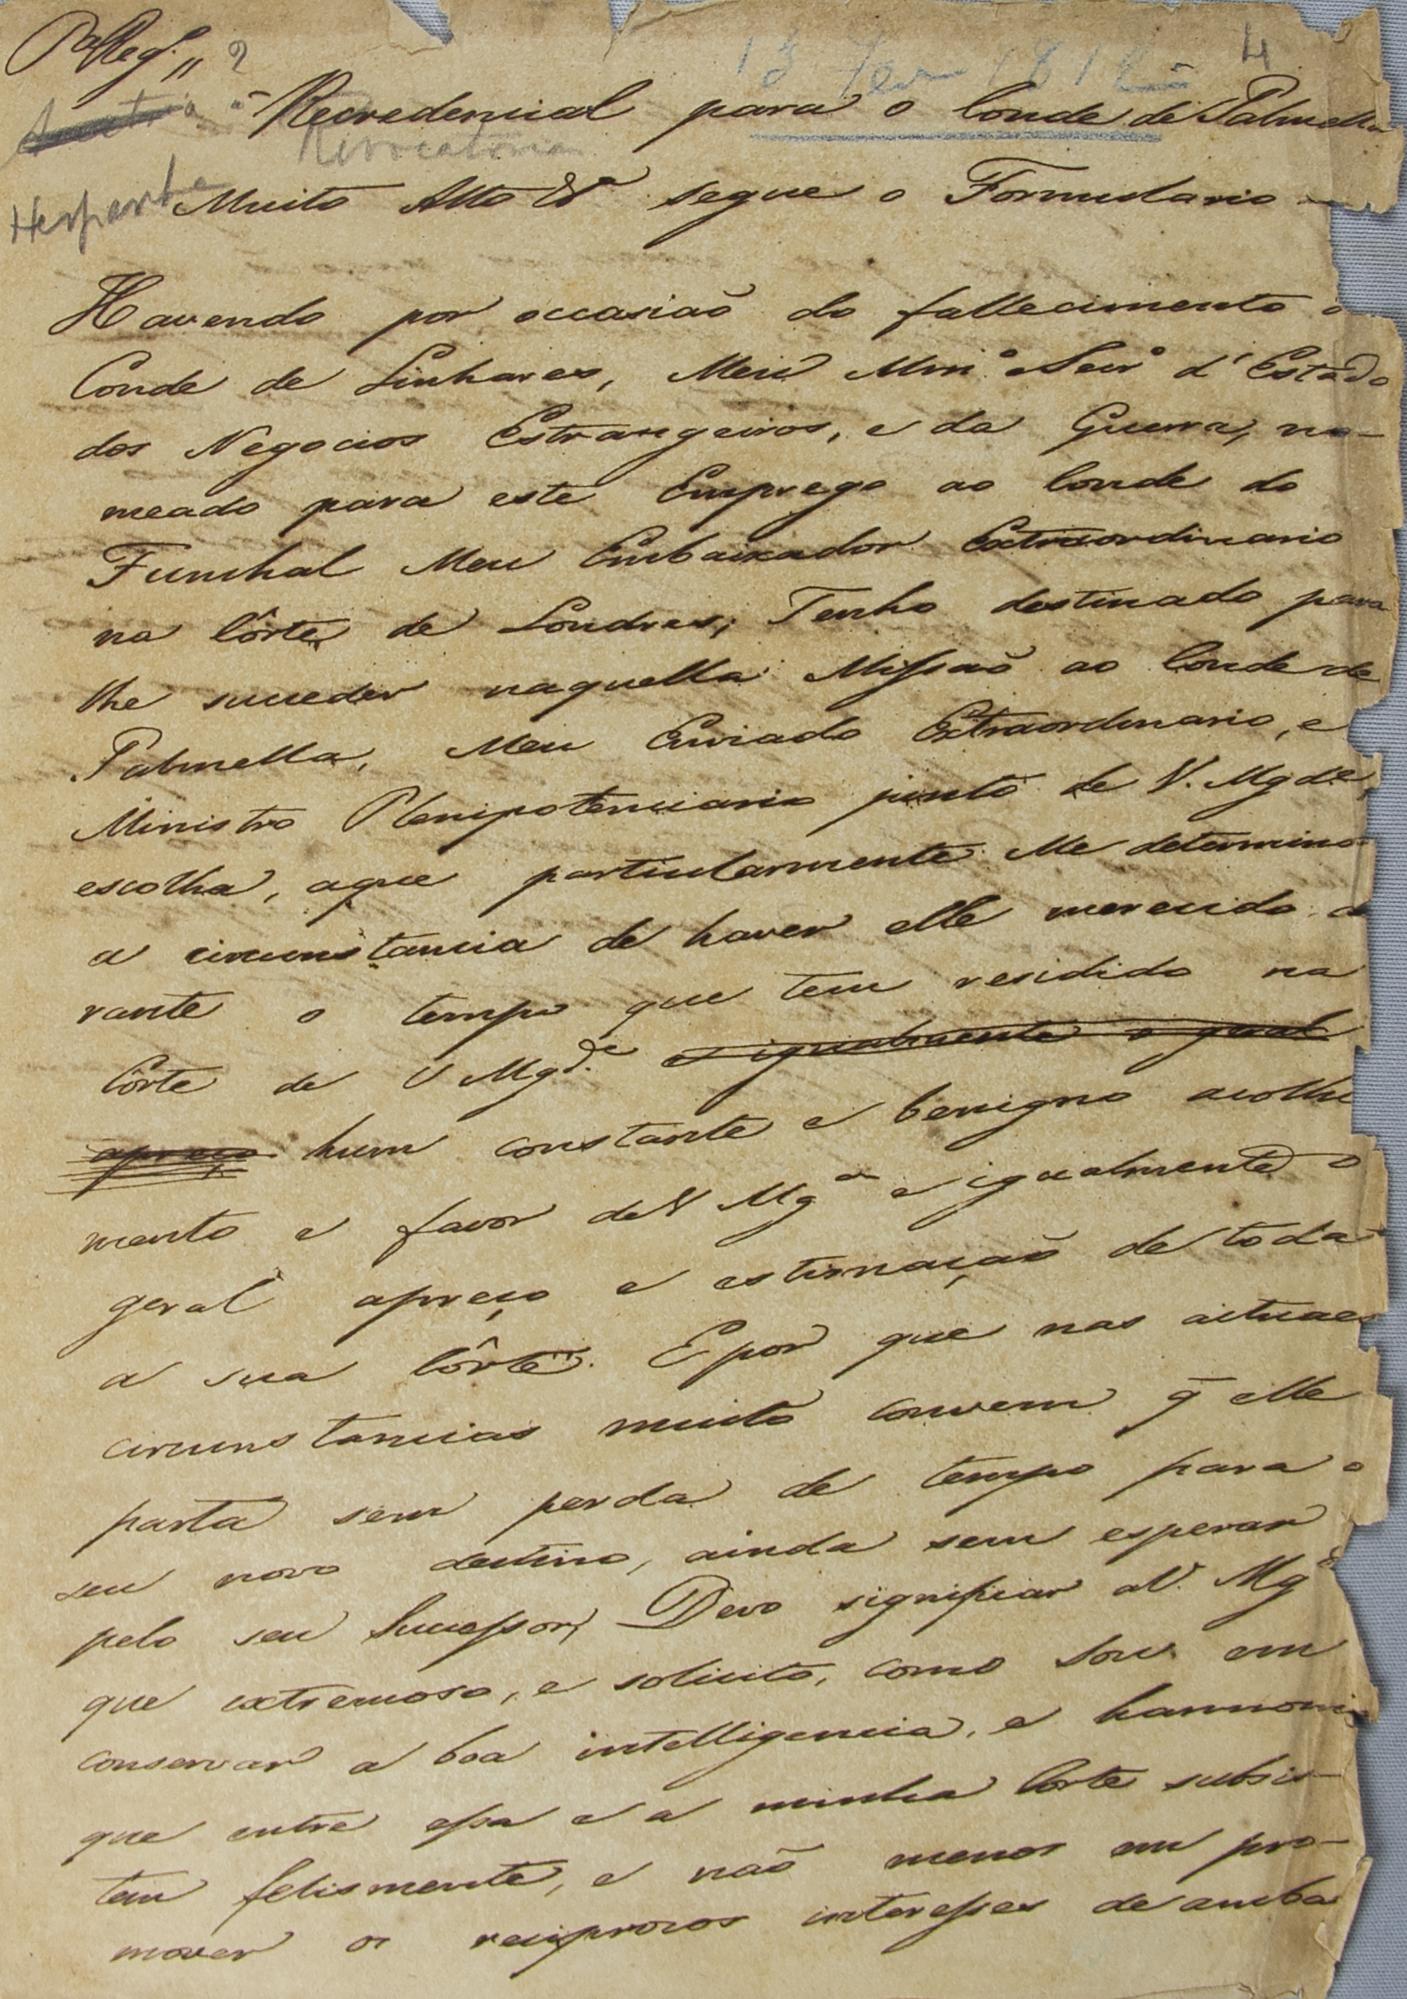 P.ª Reg.º ,, 2
13 Fev 1812 4
Recredencial para o Conde de Palmella
Revocatoria
Hespanha
Muito Alto &ª segue o Formulario
Havendo por occasiaõ do fallecimento o
Conde de Linhares, Meu Minº Secrº d'Estado
dos Negocios Estrangeiros, e da Guerra, no-
meado para este Emprego ao Conde do
Funchal Meu Embaixador Extraordinario
na Côrte de Londres; Tenho destinado para
lhe succeder naquella Missaõ ao Conde de
Palmella, Meu Enviado Extraordinario, e
Ministro Plenipotenciario junto de V. Mgde,
escolha, aque particularmente Me determinou
a circunstancia de haver elle merecido du
rante o tempo que tem residido na
Côrte de V Mgde e igualmente o geral
apreço hum constante e benigno acolhi
mento e favor de V Mgª e igualmente o
geral apreço e estimaçaõ de toda
a sua Côrte. E por que nas actuaes
circunstancias muito convem q̃ elle
parta sem perda de tempo para o
seu novo destino, ainda sem esperar
pelo seu Successor, Devo significar a V. Mge
que extremoso, e solicito, como sou em
conservar a boa intelligencia, e harmonia
que entre essa e a minha Corte subsis-
tem felismente, e naõ menos em pro-
mover os reciprocos interesses de ambas